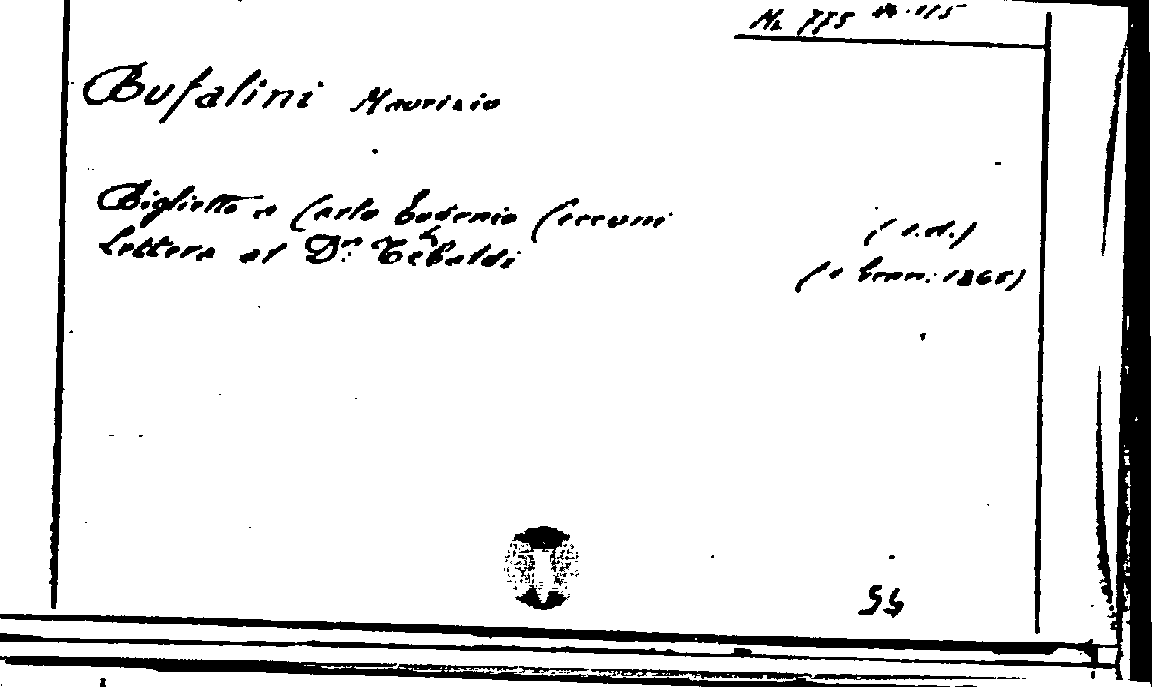 Ms. 775
Bufalini Maurizio
Biglietto a Carlo Eugenio Cecconi (s.d.)
Lettera al Dr. Tebaldi (1 Genn. 1865)